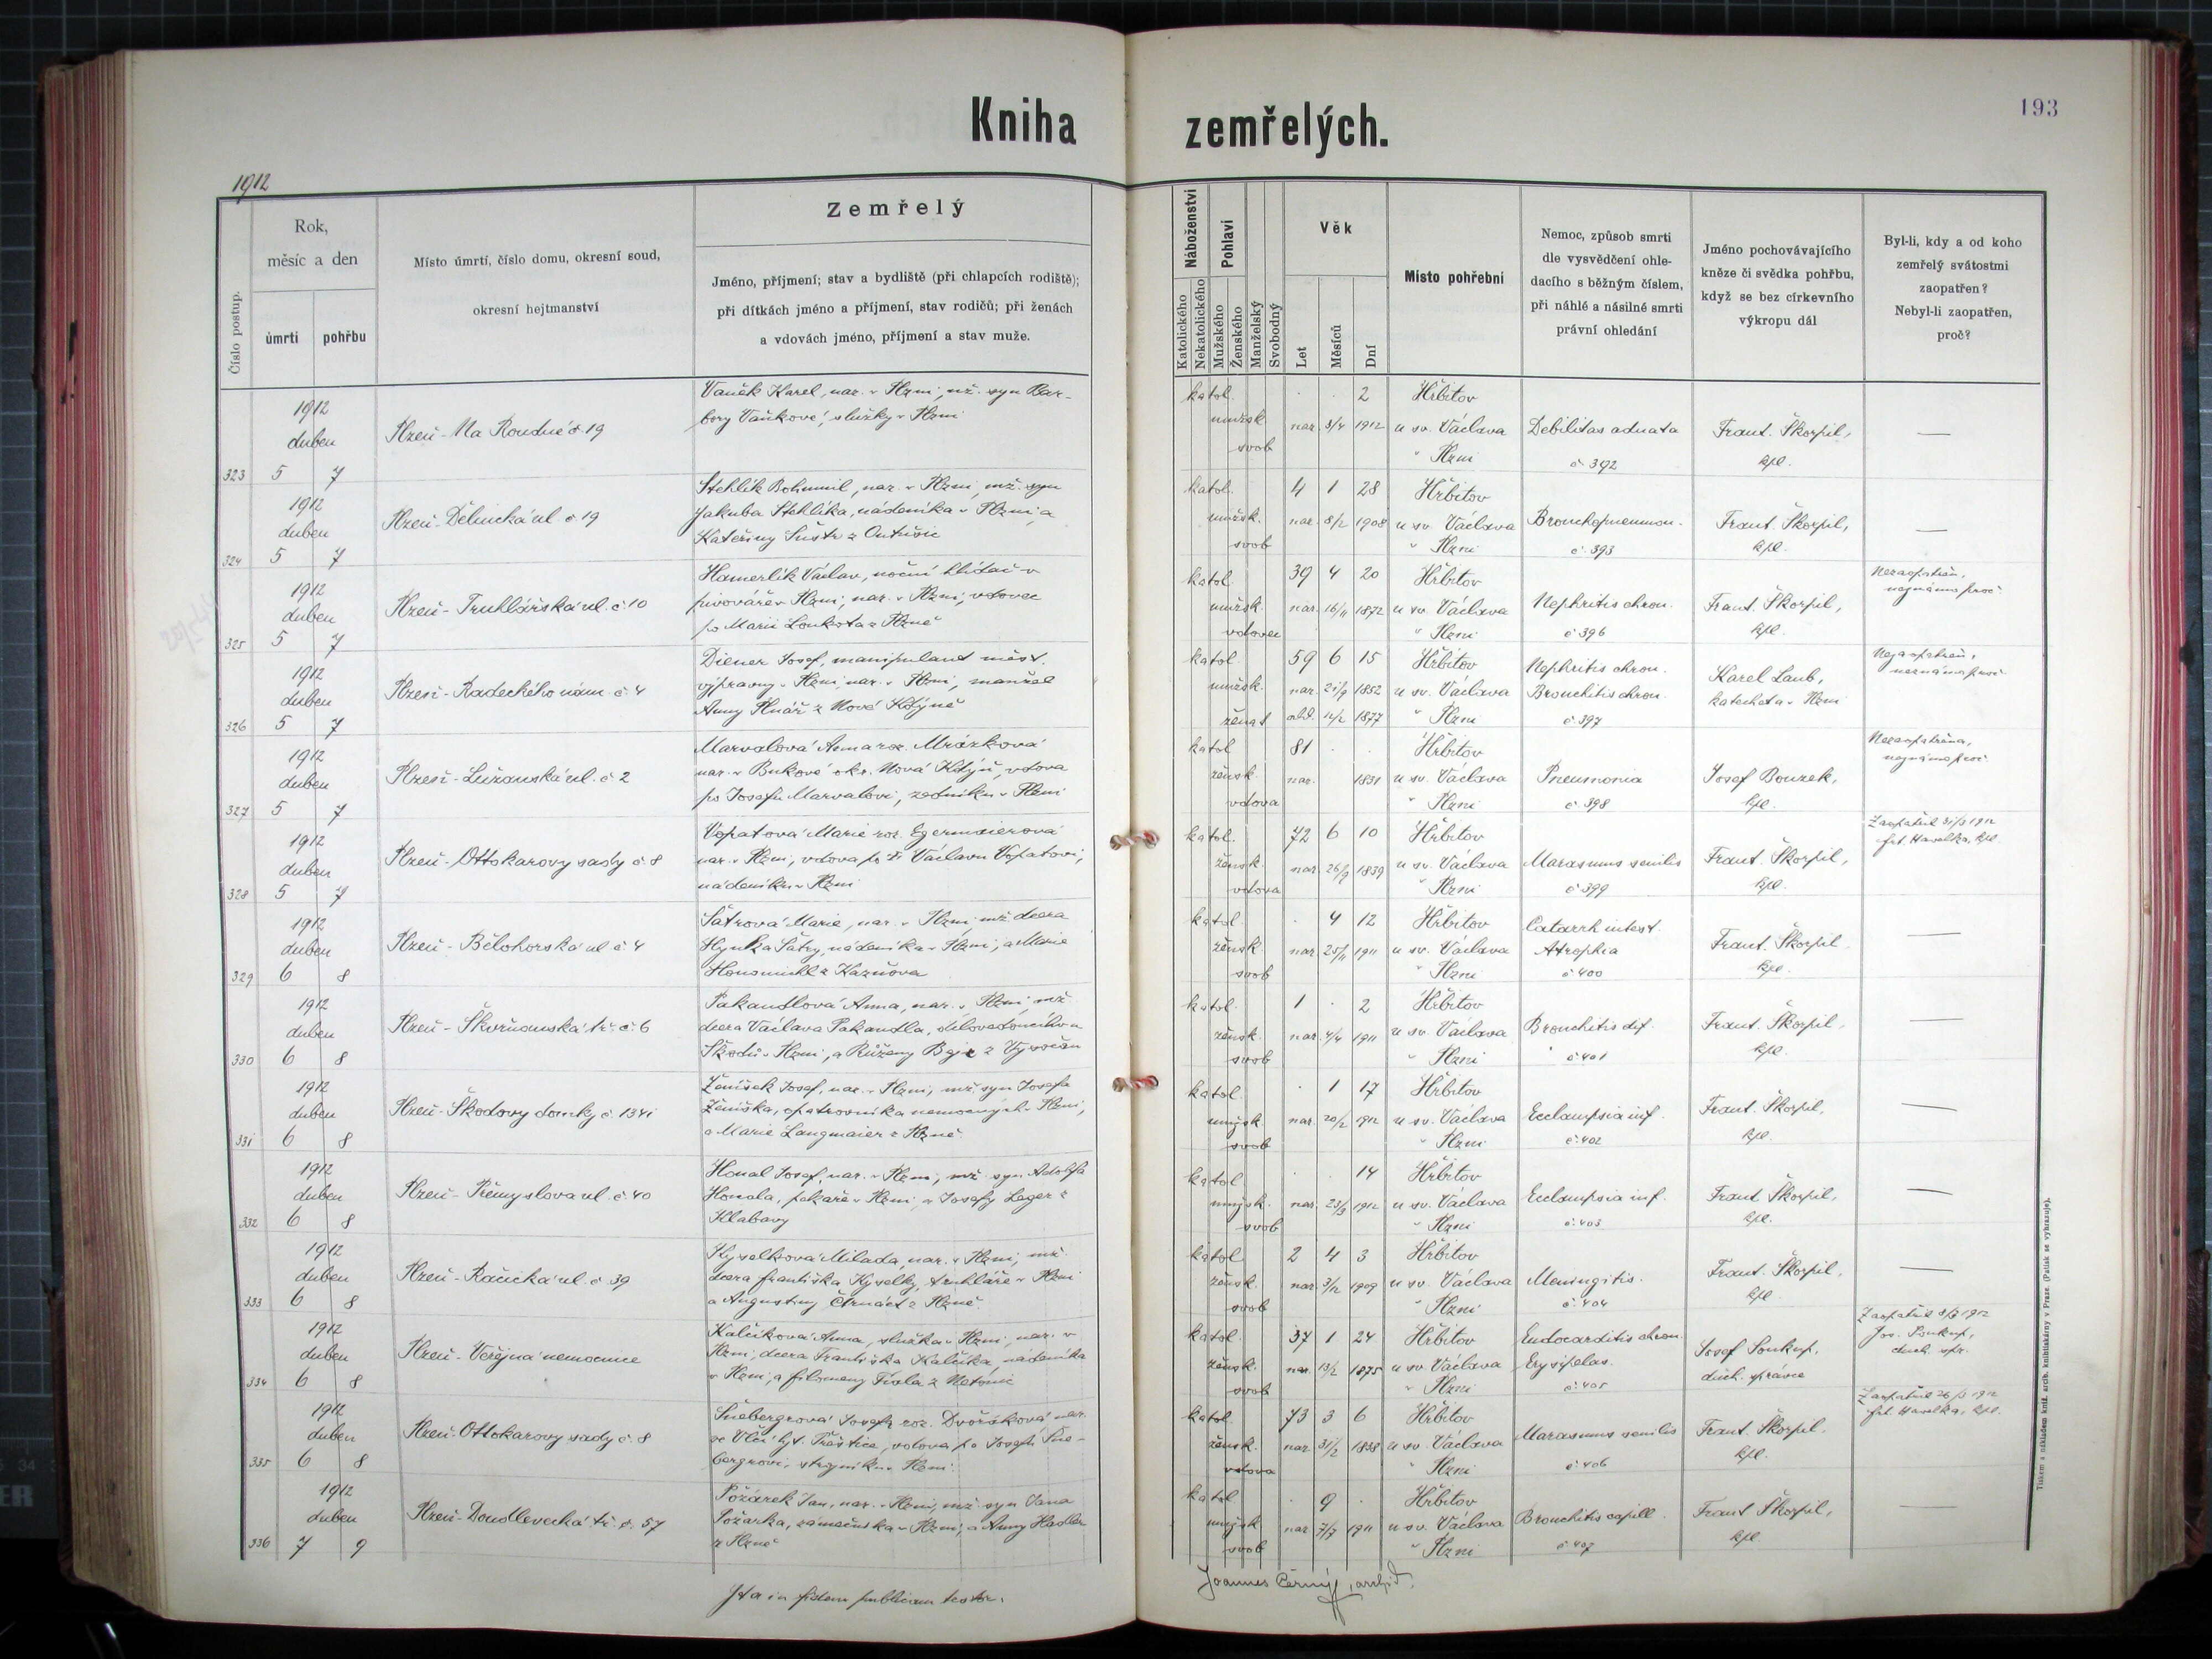 Kniha zemřelých.
193
1912
Číslo postup.
Rok,
měsíc a den
úmrtí
pohřbu
Místo úmrtí, číslo domu, okresní soud,
okresní hejtmanství
Zemřelý
Jméno, příjmení; stav a bydliště (při chlapcích rodiště);
při dítkách jméno a příjmení, stav rodičů; při ženách
a vdovách jméno, příjmení a stav muže.
Náboženství
Katolického
Nekatolického
Pohlaví
Mužského
Ženského
Manželský
Svobodný
Věk
Let
Měsíců
Dní
Místo pohřební
Nemoc, způsob smrti
dle vysvědčení ohle-
dacího s běžným číslem,
při náhlé a násilné smrti
právní ohledání
Jméno pochovávajícího
kněze či svědka pohřbu,
když se bez církevního
výkropu dál
Byl-li, kdy a od koho
zemřelý svátostmi
zaopatřen?
Nebyl-li zaopatřen,
proč?
323 1912 duben 5 7
Plzeň-Na Roudné č 19
Vaněk Karel, nar. v Plzni, než. syn Bar-
bory Vaňkové, služky v Plzni
katol. mužsk. svob
2
nar. 3/4 1912
Hřbitov
u sv. Václava
v Plzni
Debilitas adnata
č 392
Frant. Škorpil,
kpl.
—
324 1912 duben 5 7
Plzeň-Dělnická ul. č 19
Stehlík Bohumil, nar. v Plzni, mž. syn
Jakuba Stehlíka, nádeníka v Plzni a
Kateřiny Šustr z
katol. mužsk. svob
4 1 28
nar. 8/2 1908
Hřbitov
u sv. Václava
v Plzni
Bronchopneumon.
č. 393
Frant. Škorpil,
kpl.
—
325 1912 duben 5 7
Plzeň-Truhlářská ul. č. 10
Hamerlík Václav, noční hlídač v
pivováře v Plzni, nar. v Plzni, vdovec
po Marii Loukota z Plzně
katol. mužsk. vdovec
39 4 20
nar. 16/11 1872
Hřbitov
u sv. Václava
v Plzni
Nephritis chron.
č 396
Frant. Škorpil,
kpl.
Nezaopatřen,
neznámo proč.
326 1912 duben 5 7
Plzeň-Radeckého nám. č. 4
Diener Josef, manipulant měst.
výpravny v Plzni, nar. v Plzni, manžel
Anny Plnář z Nové Kdýně
katol. mužsk. ženat
59 6 15
nar. 21/9 1852
odd. 1877
Hřbitov
u sv. Václava
v Plzni
Nephritis chron.
Bronchitis chron.
č. 397
Karel Laub,
katecheta v Plzni
Nezaopatřen,
neznámo proč.
327 1912 duben 5 7
Plzeň-Lužanská ul. č 2
Marvalová Anna roz. Mrázková
nar. v Bukové okr. Nová Kdýň, vdova
po Josefu Marvalovi, zedníku v Plzni
katol žensk. vdova
81
nar. 1831
Hřbitov
u sv. Václava
v Plzni
Pneumonia
č. 398
Josef Bouzek,
kpl.
Nezaopatřena,
neznámo proč.
328 1912 duben 5 7
Plzeň-Ottokarovy sady č 8
Vopatová Marie roz. Egermaierová
nar. v Plzni, vdova po Václavu Vopatovi,
nádeníku v Plzni
katol. žensk. vdova
72 6 10
nar. 26/9 1839
Hřbitov
u sv. Václava
v Plzni
Marasmus senilis
č 399
Frant. Škorpil,
kpl.
Zaopatřil 31/3 1912
frt. Havelka, kpl.
329 1912 duben 6 8
Plzeň-Bělohorská ul č 4
Šátrová Marie, nar. v Plzni, mž. dcera
Hynka Šátry, nádeníka v Plzni, a Marie
z Kaznova
katol. žensk. svob
4 12
nar. 25/11 1911
Hřbitov
u sv. Václava
v Plzni
Catarrh intest.
Atrophia
č 400
Frant. Škorpil,
kpl.
—
330 1912 duben 6 8
Plzeň-Škvrňanská tř. č. 6
Pakandlová Anna, nar. v Plzni, mž.
dcera Václava Pakandla, dílovedoucího u
Škodů v Plzni, a Růženy z Vysočan
katol. žensk. svob
1 2
nar. 4/4 1911
Hřbitov
u sv. Václava
v Plzni
Bronchitis dif.
č 401
Frant. Škorpil,
kpl.
—
331 1912 duben 6 8
Plzeň-Škodovy domky č. 1341
Ženíšek Josef, nar. v Plzni, mž. syn Josefa
Ženíška, opatrovníka nemocných v Plzni,
a Marie Langmaier z Plzně
katol. mužsk. svob
1 17
nar. 20/2 1912
Hřbitov
u sv. Václava
v Plzni
Ecclampsia inf.
č. 402
Frant. Škorpil,
kpl.
—
332 1912 duben 6 8
Plzeň-Přemyslova ul. č. 40
Honal Josef, nar. v Plzni, mž. syn Adolfa
Honala, pekaře v Plzni, a Josefy Lager z
Klabavy
katol. mužsk. svob
14
nar. 23/3 1912
Hřbitov
u sv. Václava
v Plzni
Ecclampsia inf.
č. 403
Frant Škorpil,
kpl.
—
333 1912 duben 6 8
Plzeň-Račická ul. č 39
Kyselková Milada, nar. v Plzni, mž.
dcera Františka Kyselky, truhláře v Plzni
a Augustiny Čtrnáct z Plzně.
katol žensk. svob
2 4 3
nar. 3/12 1909
Hřbitov
u sv. Václava
v Plzni
Meningitis.
č. 404
Frant. Škorpil,
kpl.
—
334 1912 duben 6 8
Plzeň-Veřejná nemocnice
Kalčíková Anna, služka v Plzni, nar. v
Plzni, dcera Františka Kalčíka, nádeníka
v Plzni, a Filomeny Fiala z Netonic
katol. žensk. svob
37 1 24
nar. 13/2 1875
Hřbitov
u sv. Václava
v Plzni
Endocarditis chron.
Erysipelas.
č. 405
Josef Soukup,
duch. správce
Zaopatřil 3/3 1912
Jos. Soukup,
duch. spr.
335 1912 duben 6 8
Plzeň-Ottokarovy sady č. 8
Šnebergrová Josefa roz. Dvořáková nar.
ve Vlčí hjt. Přeštice, vdova po Josefu Šne-
bergrovi, strojníku v Plzni.
katol. žensk. vdova
73 3 6
nar. 31/12 1838
Hřbitov
u sv. Václava
v Plzni
Marasmus senilis
č. 406
Frant. Škorpil.
kpl.
Zaopatřil 26/3 1912
frt. Havelka, kpl.
336 1912 duben 7 9
Plzeň-Doudlevecká tř. č. 57
Požárek Jan, nar. v Plzni, mž. syn Jana
Požárka, zámečníka v Plzni, a Anny Hadler
z Plzně
katol mužsk svob
9
nar 7/7 1911
Hřbitov
u sv. Václava
v Plzni
Bronchitis capill.
č. 407
Frant Škorpil,
kpl.
—
Ita in fidem publicam testor.
Joannes Černý, archid.
Tiskem a nákladem kníž. arcib. knihtiskárny v Praze. (Patisk se vyhrazuje).